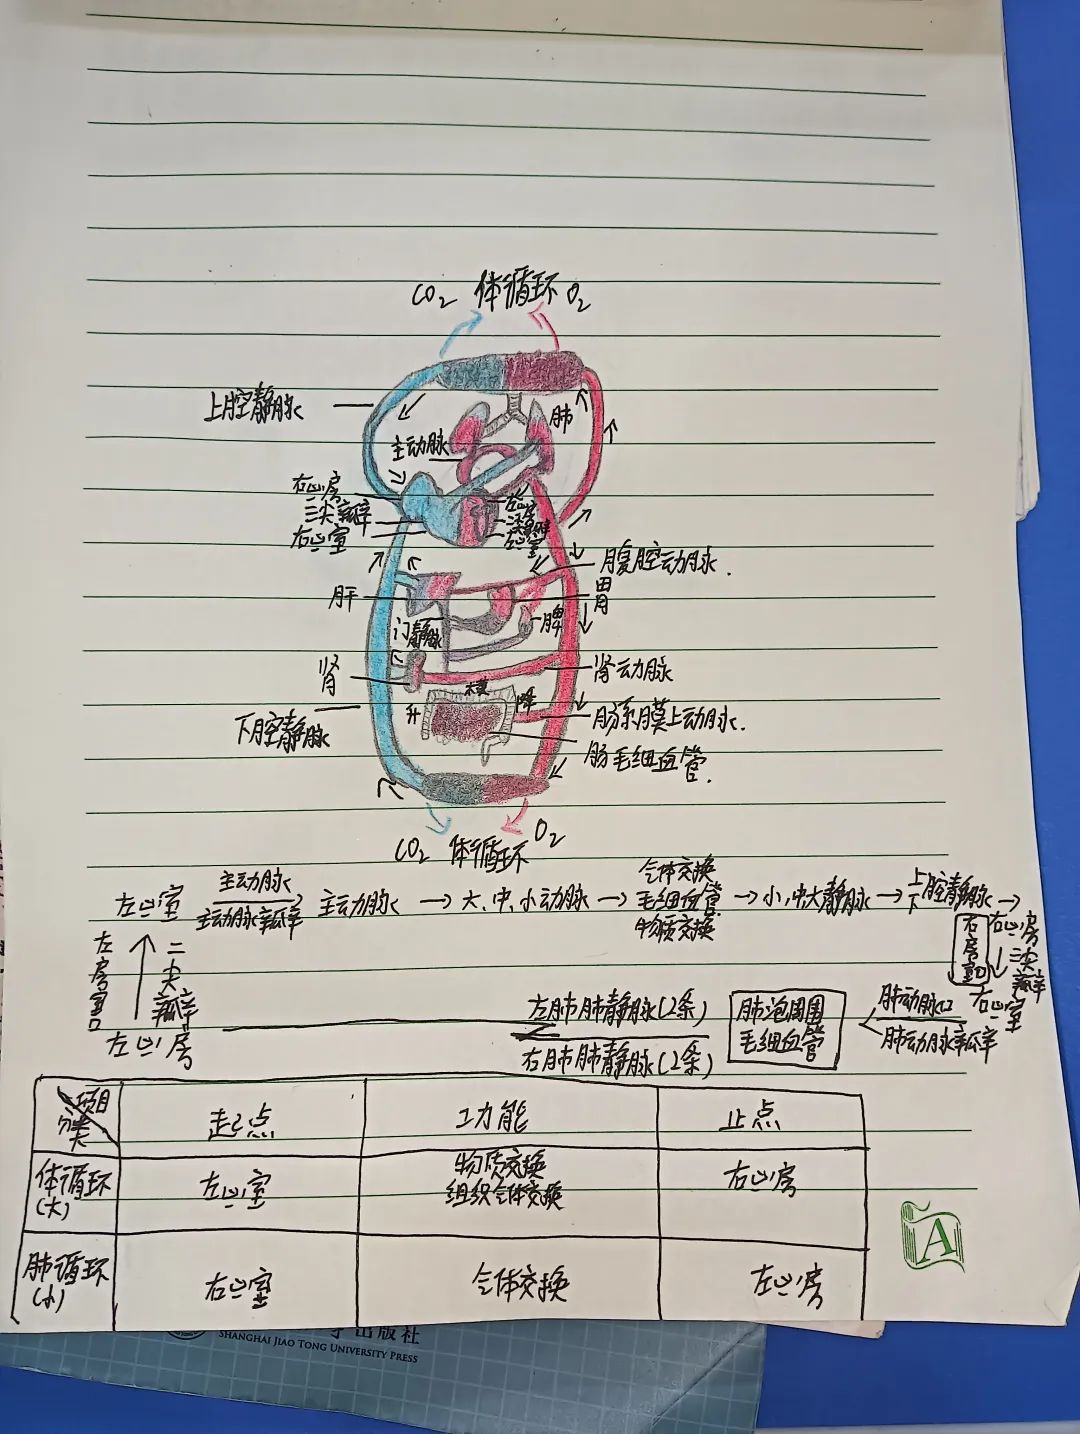 CO₂ 体循环 O₂
上腔静脉
肺
主动脉
右心房
三尖瓣
右心室
左心房
二尖瓣
左心室
腹腔动脉.
胃
肝
门静脉
脾
肾
肾动脉
横
升
降
下腔静脉
肠系膜上动脉.
肠毛细血管.
CO₂ 体循环 O₂
左心室 主动脉 主动脉瓣 主动脉 → 大、中、小动脉 → 气体交换 毛细血管 物质交换 → 小,中大静脉 → 上下腔静脉 →
右心房
右房室口
三尖瓣
右心室
肺动脉口
肺动脉瓣
肺泡周围
毛细血管
左肺肺静脉(2条)
右肺肺静脉(2条)
左房室口
二尖瓣
左心房
项目
分类
起点 功能 止点
体循环
(大)
左心室
物质交换
组织气体交换
右心房
肺循环
(小)
右心室 气体交换 左心房
A
出版社
SHANGHAI JIAO TONG UNIVERSITY PRESS